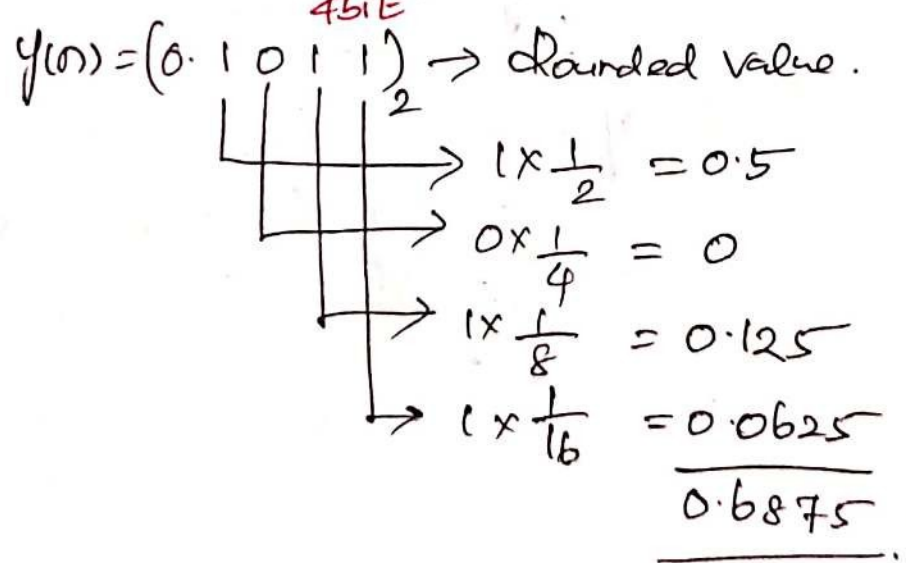 4bit
y(n) = (0. 1 0 1 1)₂ → Rounded value.
→ 1 × 1/2 = 0.5
→ 0 × 1/4 = 0
→ 1 × 1/8 = 0.125
→ 1 × 1/16 = 0.0625
0.6875